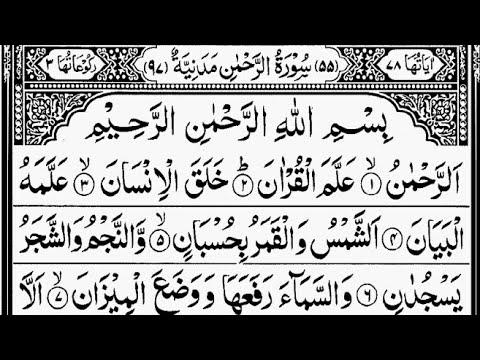 اٰيَاتُهَا ٧٨ (٥٥) سُوْرَةُ الرَّحْمٰنِ مَدَنِيَّةٌ (٩٧) رُكُوْعَاتُهَا ٣
بِسْمِ اللهِ الرَّحْمٰنِ الرَّحِيْمِ
اَلرَّحْمٰنُ ۙ﴿١﴾ عَلَّمَ الْقُرْاٰنَ ؕ﴿٢﴾ خَلَقَ الْاِنْسَانَ ۙ﴿٣﴾ عَلَّمَهُ
الْبَيَانَ ﴿٤﴾ اَلشَّمْسُ وَالْقَمَرُ بِحُسْبَانٍ ۙ﴿٥﴾ وَّالنَّجْمُ وَالشَّجَرُ
يَسْجُدٰنِ ﴿٦﴾ وَالسَّمَآءَ رَفَعَهَا وَوَضَعَ الْمِيْزَانَ ۙ﴿٧﴾ اَلَّا